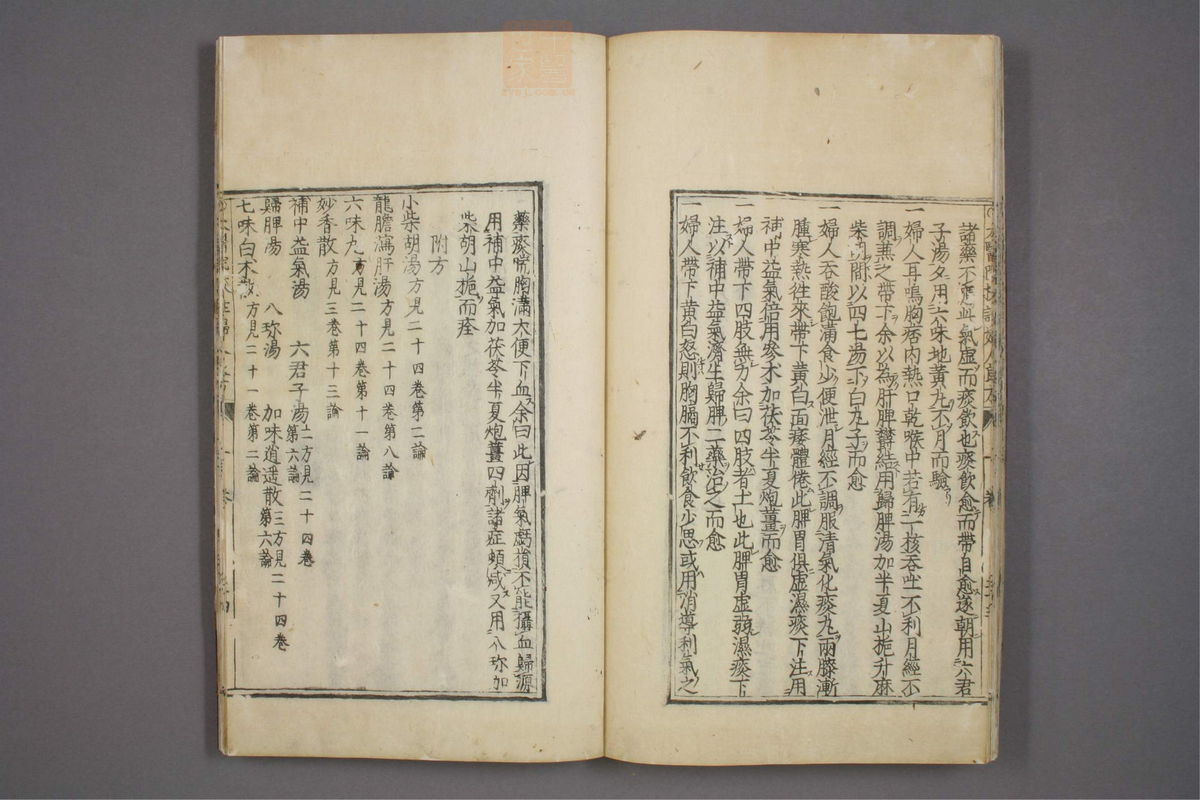 諸藥不應此氣虛而痰飲也痰飲愈而帶自愈遂朝用六君
子湯夕用六味地黃丸不月而驗
一婦人耳鳴胸痞內熱口乾喉中若有一核吞吐不利月經不
調兼之帶下余以為肝脾欝結用歸脾湯加半夏山梔升麻
柴胡間以四七湯下白丸子而愈
一婦人吞酸飽滿食少便泄月經不調服清氣化痰丸兩膝漸
腫寒熱往來帶下黃白面痿體倦此脾胃俱虛濕痰下注用
補中益氣倍用參朮加茯苓半夏炮薑而愈
一婦人帶下四肢無力余曰四肢者土也此脾胃虛弱濕痰下
注以補中益氣濟生歸脾二藥治之而愈
一婦人帶下黃白怒則胸膈不利飲食少思或用消導利氣之
藥痰喘胸滿大便下血余曰此因脾氣虧損不能攝血歸源
用補中益氣加茯苓半夏炮薑四劑諸症頓减又用八珎加
柴胡山梔而痊
附方
小柴胡湯方見二十四卷第二論
龍膽瀉肝湯方見二十四卷第八論
六味丸方見二十四卷第十一論
妙香散方見三卷第十三論
補中益氣湯 六君子湯二方見二十四卷第六論
歸脾湯 八珎湯 加味逍遥散三方見二十四卷第六論
七味白朮散方見二十一卷第二論